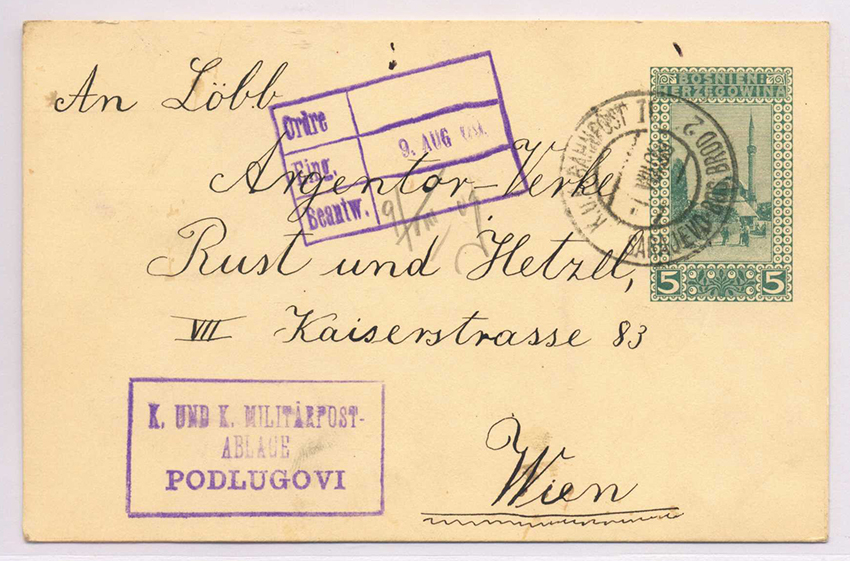 An Löbl
Argentor-Werke
Rust und Hetzel,
VII Kaiserstrasse 83
Wien
Ordre
Eing. 9. AUG 09.
Beantw. 9/VIII 09
BOSNIEN-
HERZEGOWINA
5 5
K.U.K. BAHNPOST
SARAJEVO-BOS. BROD 2.
K. UND K. MILITÄRPOST-
ABLAGE
PODLUGOVI